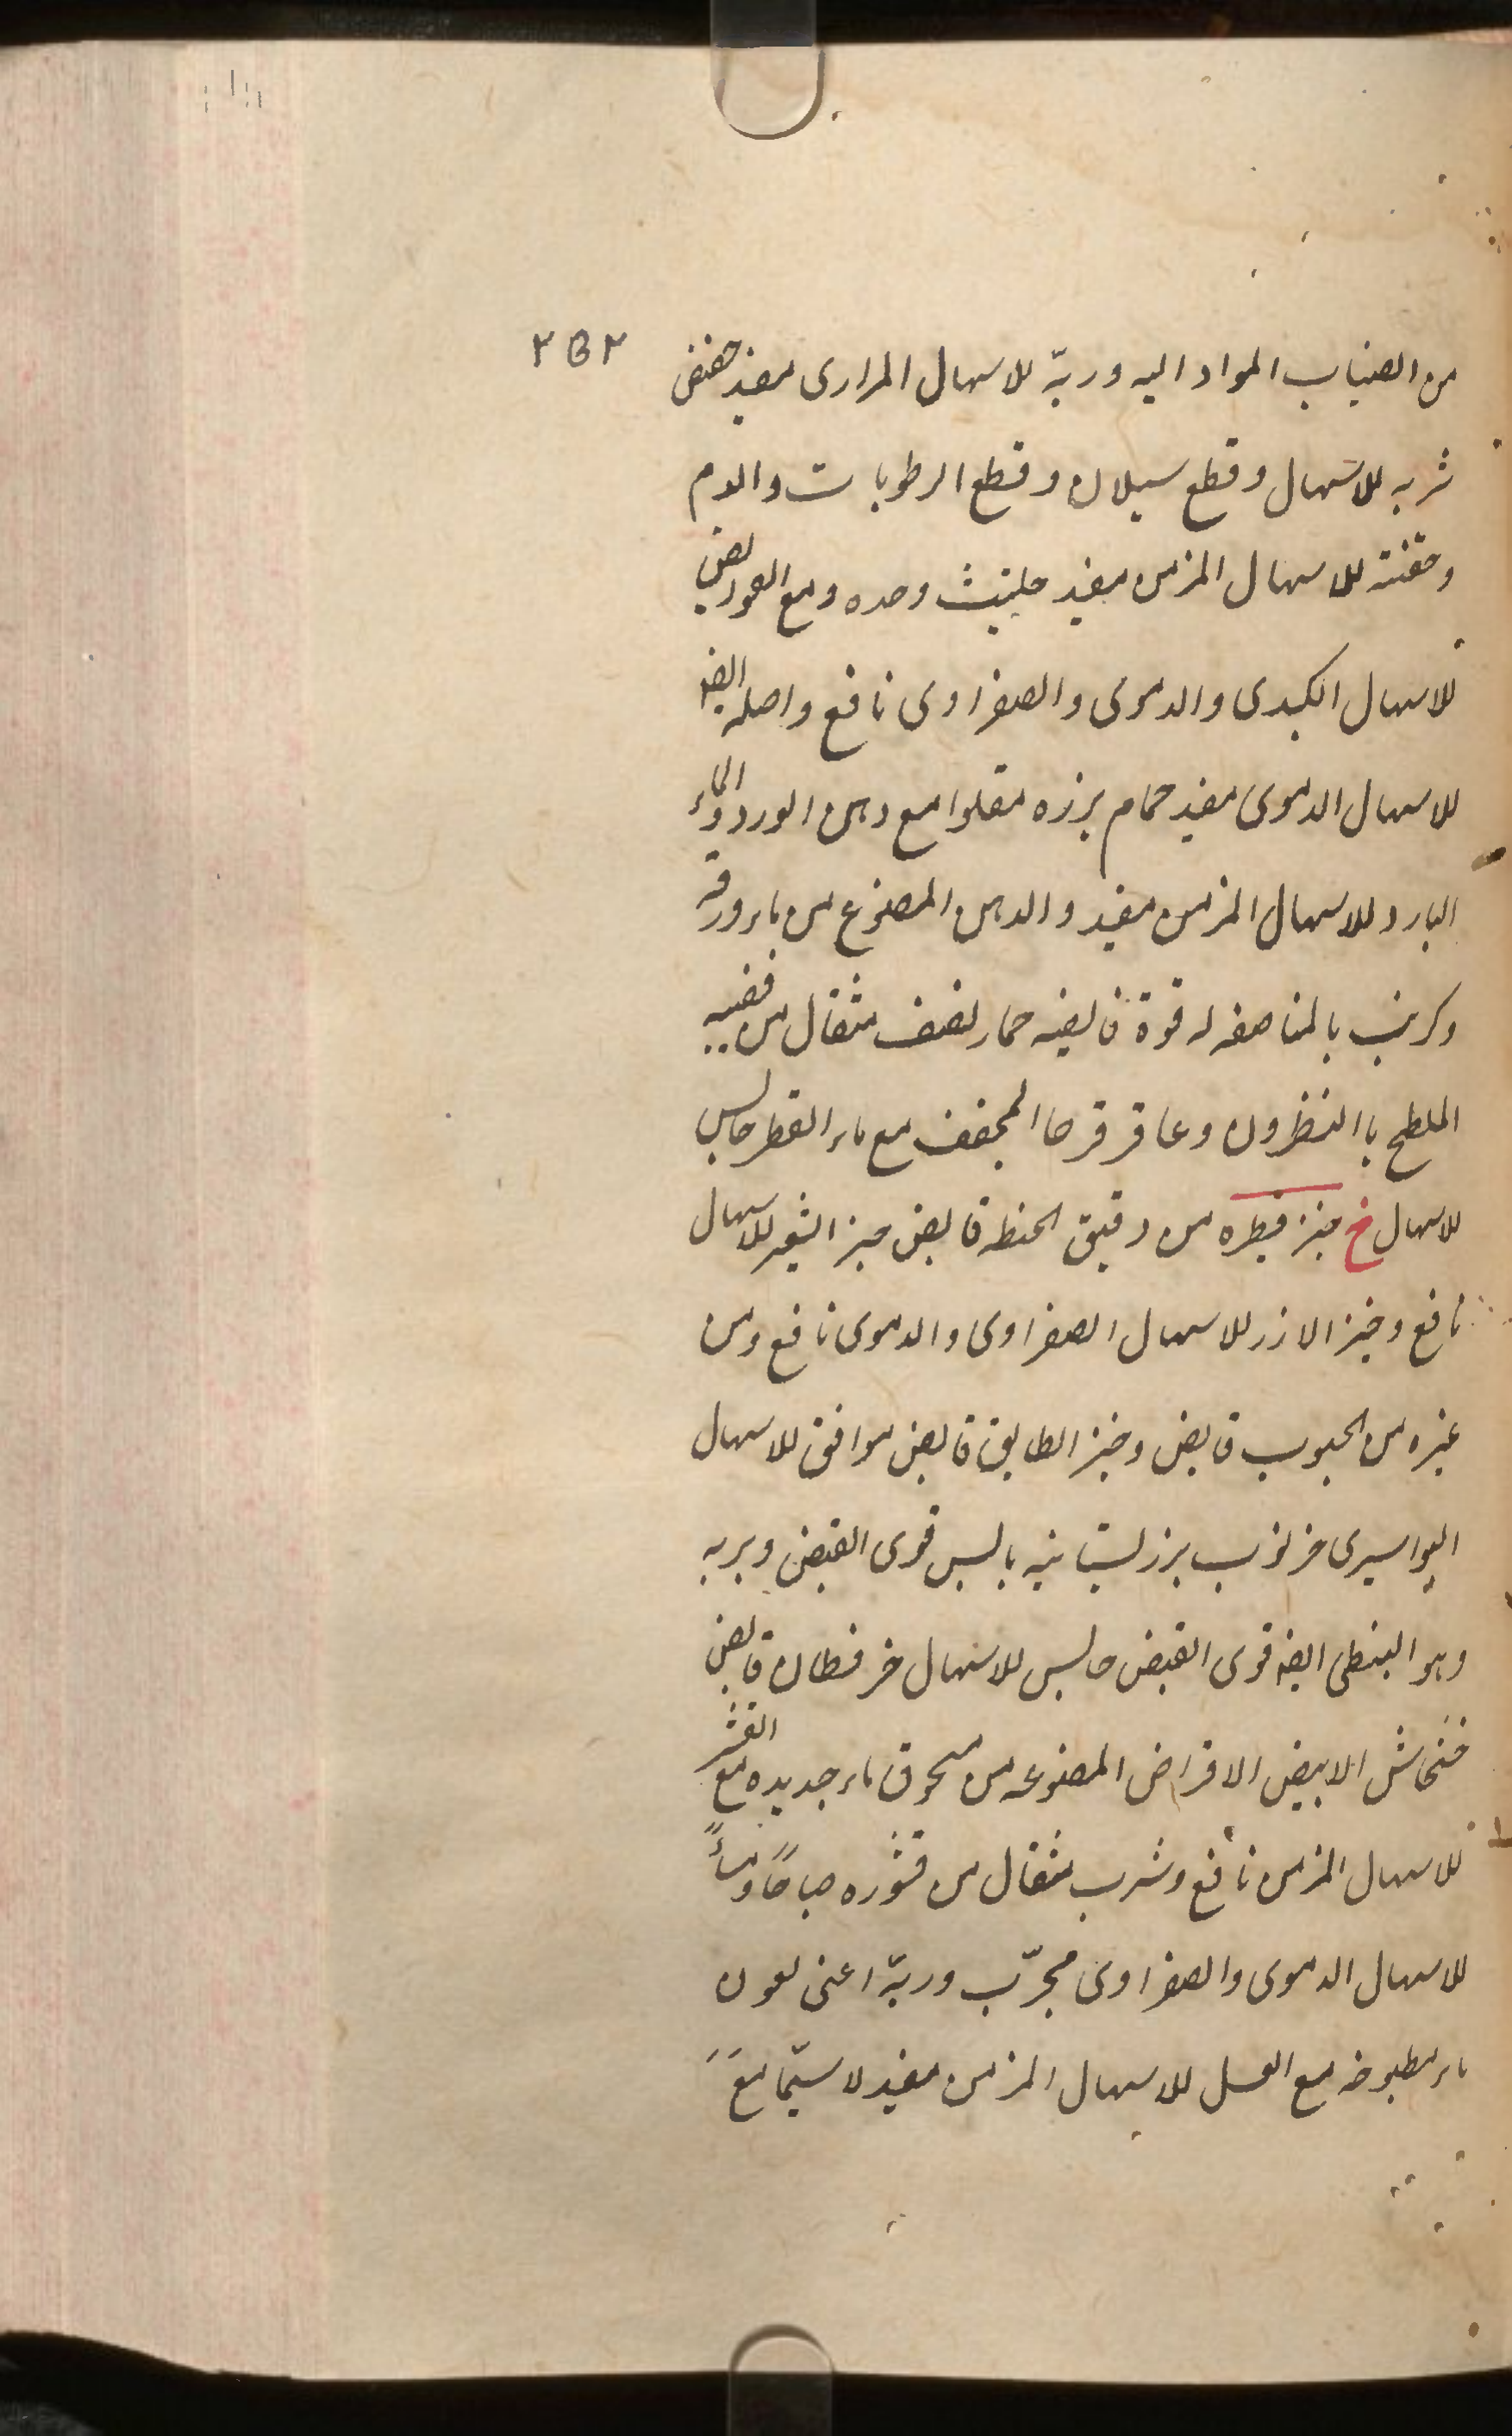 ٢٥٢
من انصباب المواد اليه وربّه للاسهال المرارى مفيد حضض
شربه للاسهال وقطع سيلان وقطع الرطوبات والدم
وحقنته للاسهال المزمن مفيد حلتيث وحده ومع
للاسهال الكبدى والدموى والصفراوى نافع واصله ايضا
للاسهال الدموى مفيد حمام بزره مقلوا مع دهن الورد والماء
البارد وللاسهال المزمن مفيد والدهن المصنوع من ماء ورقه
وكرنب بالمناصفه له قوة قابضه حمار نصف مثقال من قضيبه
الملطح باالنظرون وعاقر قرحا المجفف مع ماء القطر حابس
للاسهال خ خبز فطره من دقيق الحنطه قابض خبز الشعير للاسهال
نافع وخبز الارز للاسهال الصفراوى والدموى نافع ومن
غيره من الحبوب قابض وخبز الطابق قابض موافق للاسهال
البواسيرى خرنوب بزر بستانيه يابس قوى القبض وبريه
وهو النبطى ايضه قوى القبض حابس للاسهال خر فطان قابض
خشخاش الابيض الاقراض المصنوعه من مسحوق ماء جديده مع القشر
للاسهال المزمن نافع وشرب مثقال من قشوره صباحًا ومساءً
للاسهال الدموى والصفراوى مجرّب وربّه اعنى لعون
ماء مطبوخه مع العسل للاسهال المزمن مفيد لا سيّما مع